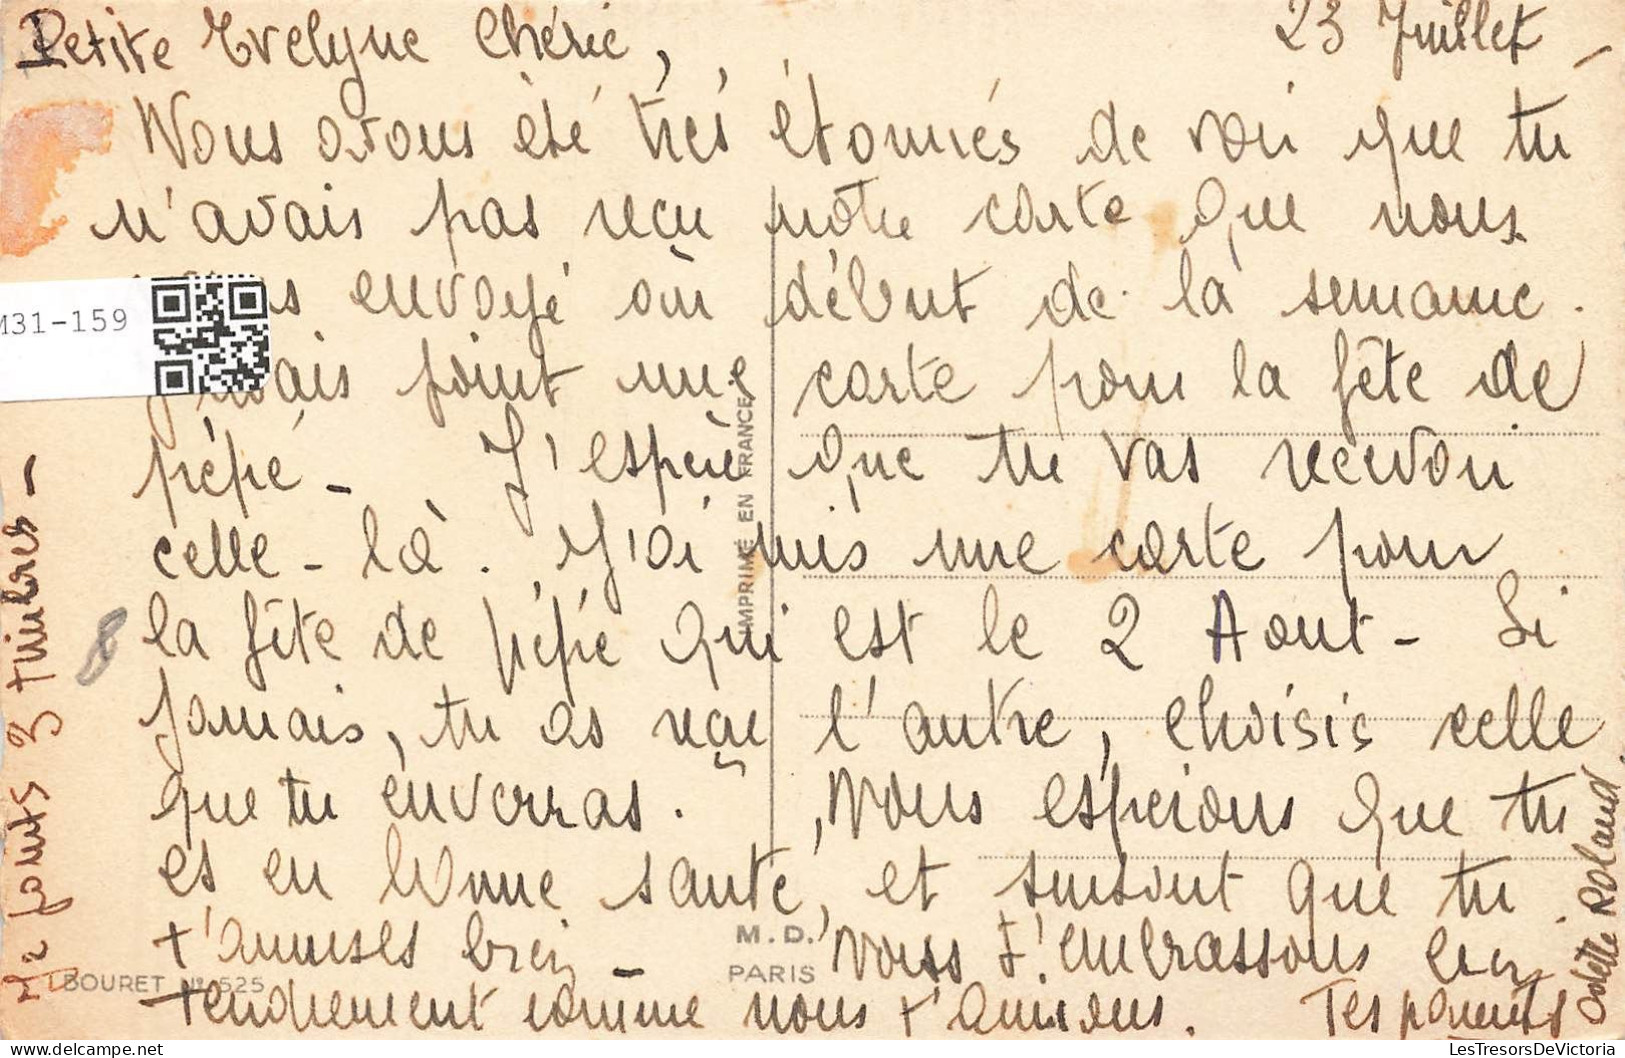 Petite Evelyne Chérie, 23 Juillet -
Nous avons été très étonnés de voir que tu
n'avais pas reçu notre carte que nous
envoyé au début de la semaine.
joint une carte pour la fête de
pépé - J'espère que tu vas recevoir
celle-là. J'ai mis une carte pour
la fête de pépé qui est le 2 Aout - Si
jamais, tu as reçu l'autre, choisis celle
que tu enverras. Nous espérons que tu
es en bonne santé, et surtout que tu
t'amuses bien - Nous t'embrassons bien
tendrement comme nous t'aimons. Tes parents
Odette Roland.
3 timbres -
8
M31-159
IMPRIMÉ EN FRANCE
M.D.
PARIS
BOURET No 525
LesTresorsDeVictoria